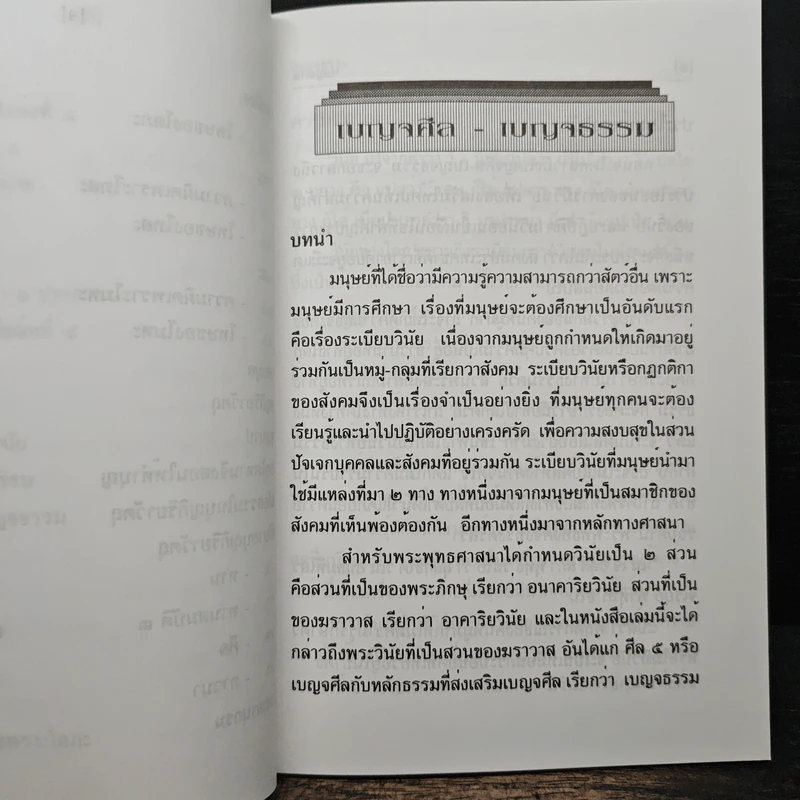 เบญจศีล - เบญจธรรม
บทนำ
มนุษย์ที่ได้ชื่อว่ามีความรู้ความสามารถกว่าสัตว์อื่น เพราะ
มนุษย์มีการศึกษา เรื่องที่มนุษย์จะต้องศึกษาเป็นอันดับแรก
คือเรื่องระเบียบวินัย เนื่องจากมนุษย์ถูกกำหนดให้เกิดมาอยู่
ร่วมกันเป็นหมู่-กลุ่มที่เรียกว่าสังคม ระเบียบวินัยหรือกฎกติกา
ของสังคมจึงเป็นเรื่องจำเป็นอย่างยิ่ง ที่มนุษย์ทุกคนจะต้อง
เรียนรู้และนำไปปฏิบัติอย่างเคร่งครัด เพื่อความสงบสุขในส่วน
ปัจเจกบุคคลและสังคมที่อยู่ร่วมกัน ระเบียบวินัยที่มนุษย์นำมา
ใช้มีแหล่งที่มา ๒ ทาง ทางหนึ่งมาจากมนุษย์ที่เป็นสมาชิกของ
สังคมที่เห็นพ้องต้องกัน อีกทางหนึ่งมาจากหลักทางศาสนา
สำหรับพระพุทธศาสนาได้กำหนดวินัยเป็น ๒ ส่วน
คือส่วนที่เป็นของพระภิกษุ เรียกว่า อนาคาริยวินัย ส่วนที่เป็น
ของฆราวาส เรียกว่า อาคาริยวินัย และในหนังสือเล่มนี้จะได้
กล่าวถึงพระวินัยที่เป็นส่วนของฆราวาส อันได้แก่ ศีล ๕ หรือ
เบญจศีลกับหลักธรรมที่ส่งเสริมเบญจศีล เรียกว่า เบญจธรรม